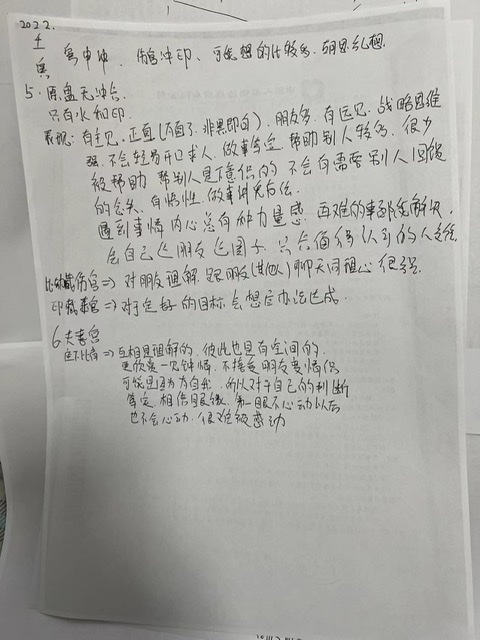 2022.
壬
寅 寅申冲. 伤官冲印、可能想的比较多. 胡思乱想.
5. 原盘无冲合.
只有水和印.
表现: 有主见. 正直(不自了. 非黑即白). 朋友多. 有远见. 战略思维
强. 不会轻易开口求人. 做事笃定 帮助别人较多. 很少
被帮助 帮别人是下意识的 不会有需要别人回馈
的念头. 有悟性. 做事讲究
遇到事情内心总有种力量感. 再难的事都能解决.
自己 朋友 圈子. 只 值得 认可的人
比劫藏伤官 => 对朋友理解. 跟朋友(其他人)聊天同理心很强.
印 官 => 对于定好的目标会想尽办法达成.
6. 夫妻宫
=> 互相是理解的. 彼此也是有空间的.
喜欢是一见钟情. 不接受朋友变情侣
可能是因为有自我. 所以对于自己的判断
笃定. 相信眼缘. 第一眼不心动以后
也不会心动. 很难被感动